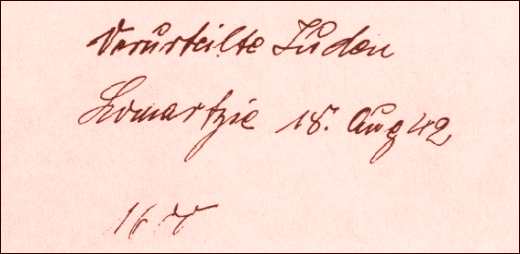 Verurteilte Juden
Lomartzie 18. Aug 42